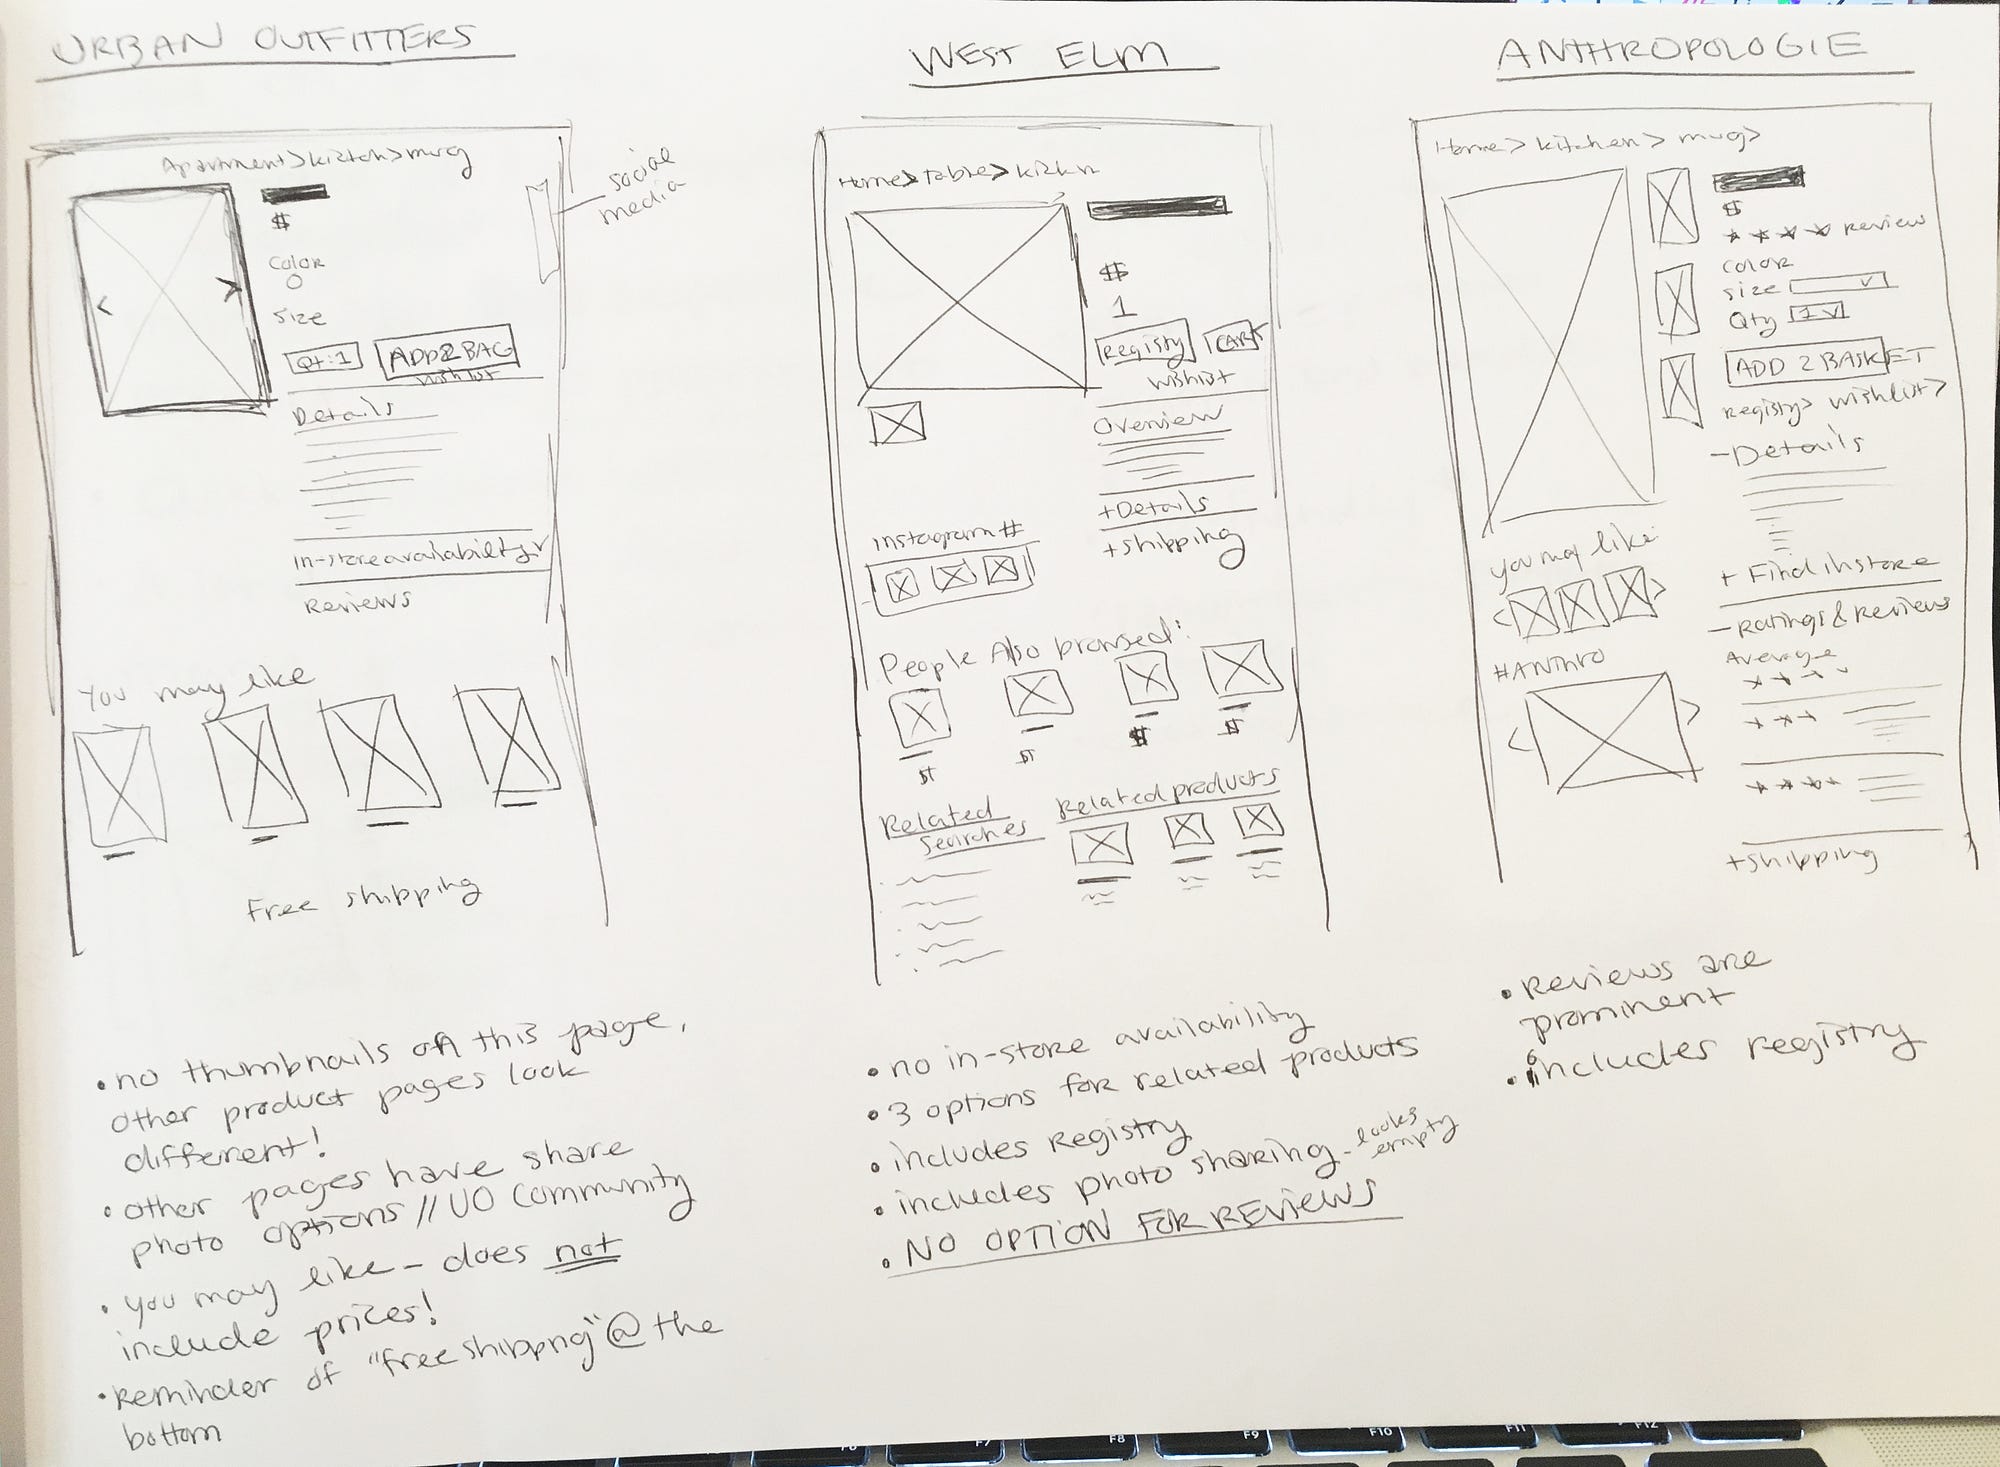 URBAN OUTFITTERS
Apartment>kitchen>mug
social
media
$
Color
Size
Qt:1 ADD 2 BAG
wishlist
Details
In-store availability v
Reviews
You may like
Free shipping
• no thumbnails on this page,
other product pages look
different!
• other pages have share
photo options // UO Community
• you may like - does not
include prices!
• Reminder of "free shipping" @ the
bottom
WEST ELM
Home>table>
$
1
Registy CART
wishlist
Overview
+Details
+shipping
Instagram #
People Also browsed:
$ $ $ $
Related
Searches
Related products
• no in-store availability
• 3 options for related products
• includes Registry
• includes photo sharing - looks
empty
• NO OPTION FOR REVIEWS
ANTHROPOLOGIE
Home> kitchen> mug>
$
Review
color
size v
Qty 1 v
ADD 2 BASKET
Registy> wishlist>
- Details
+ Find in store
- Ratings & Reviews
Average
+shipping
you may like
< >
#ANTHRO
< >
• Reviews are
prominent
• includes registry
F7 F8 F9 F10 F11 F12